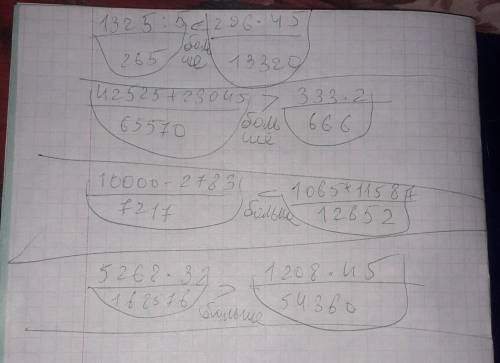 1325 : 5 < 296 · 45
265 больше 13320
42525 + 23045 > 333 · 2
65570 больше 666
10000 - 2783 < 1065 + 11587
7217 больше 12652
5268 · 32 > 1208 · 45
168576 больше 54360